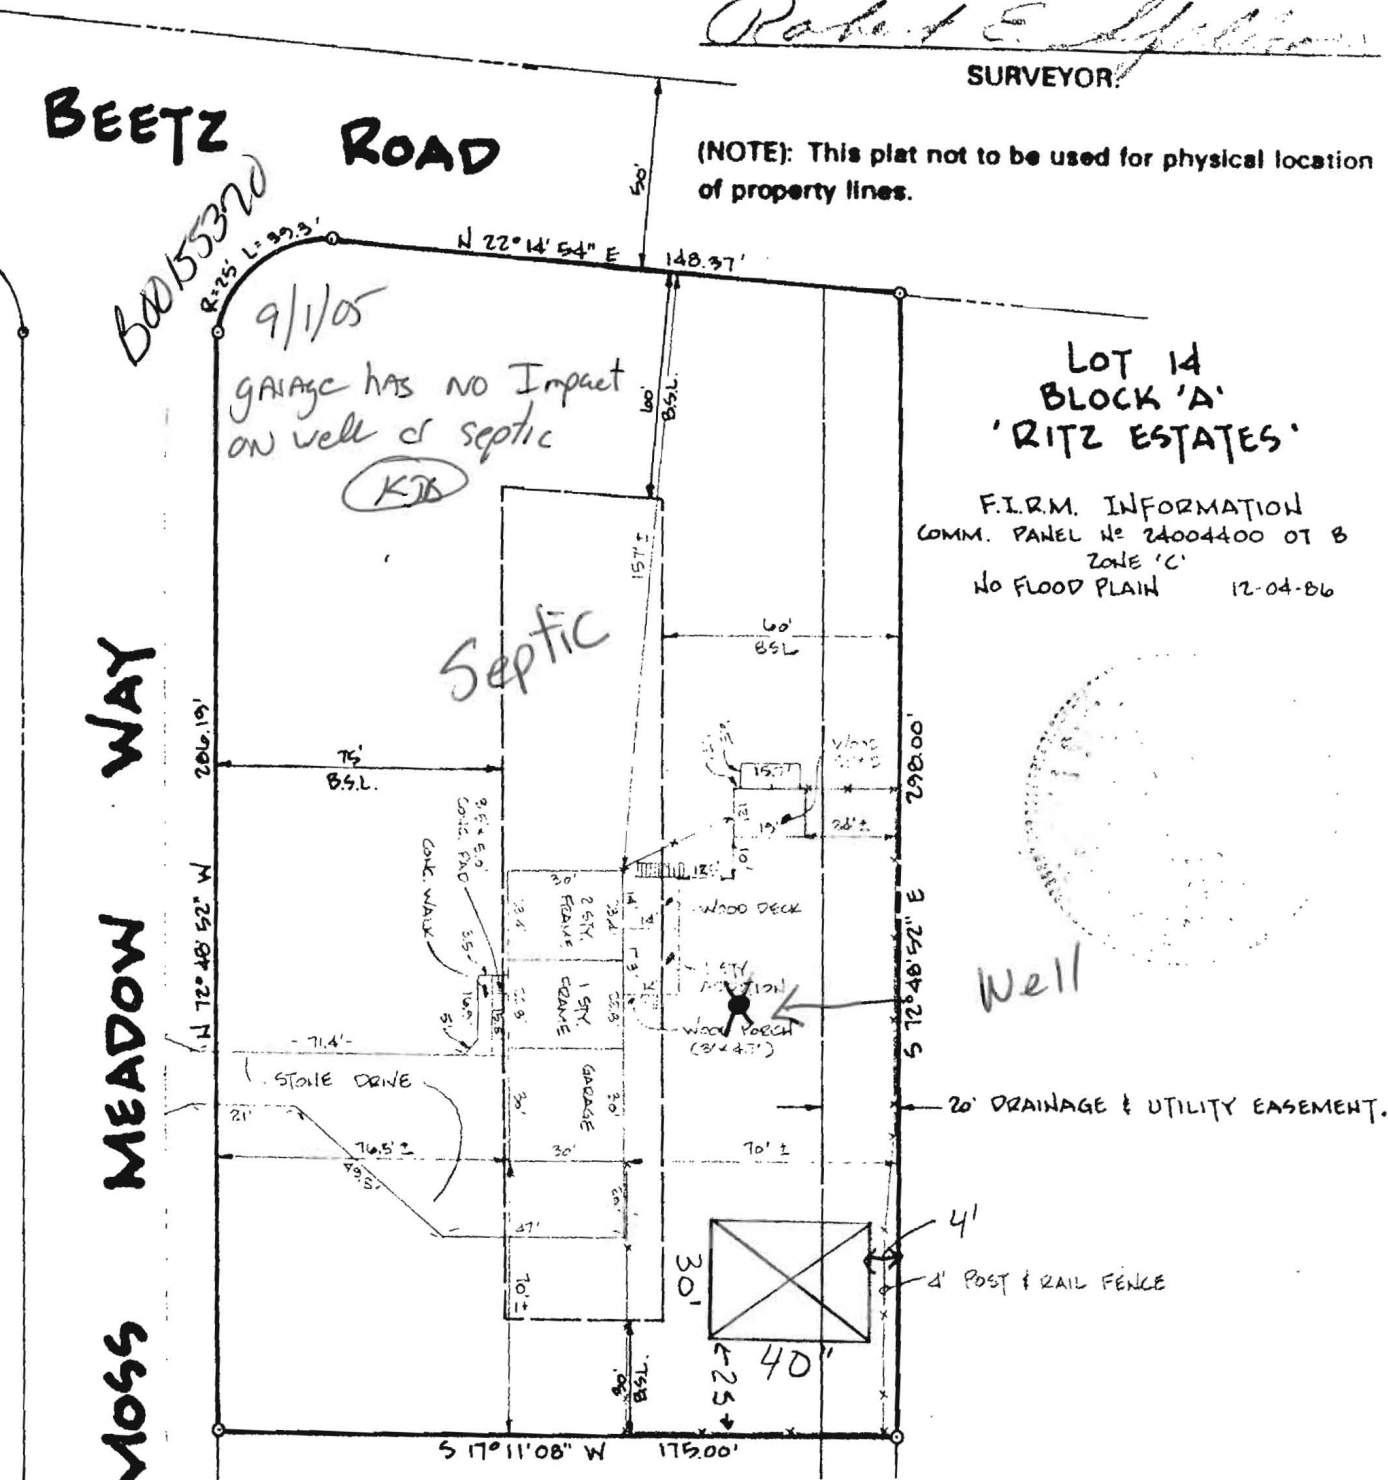 SURVEYOR.
BEETZ ROAD
(NOTE): This plat not to be used for physical location
of property lines.
B00155370
50'
R=25' L=39.3'
N 22°14'54" E 148.37'
9/1/05
GARAGE HAS NO Impact
ON well or septic
KJB
100'
B.S.L.
LOT 14
BLOCK 'A'
'RITZ ESTATES'
F.I.R.M. INFORMATION
COMM. PANEL Nº 24004400 07 B
ZONE 'C'
NO FLOOD PLAIN 12-04-86
157'±
Septic
60'
BSL
MOSS MEADOW WAY
N 72°48'52" W 206.19'
75'
B.S.L.
15.7'
12'
19'
24'±
10'
298.00'
S 72°48'52" E
3.5' x 5.0'
CONC. PAD
CONC. WALK
3.5'
30'
2 STY.
FRAME
14'
14'
WOOD DECK
1 STY
ADDITION
1 STY.
FRAME
5'
WOOD PORCH
Well
71.4'
STONE DRIVE
21'
GARAGE
30'
30'
20' DRAINAGE & UTILITY EASEMENT.
76.5'±
30'
70'±
49.5'
20'
47'
70'±
4'
4' POST & RAIL FENCE
30'
40"
25
BSL.
S 17°11'08" W 175.00'